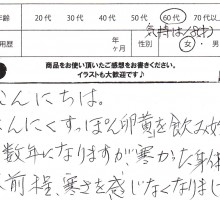 年齢 20代 30代 40代 50代 60代 70代
気持は18才
用歴 年ヶ月 性別 女・男
商品をお使い頂いたご感想をお書きください。
イラストも大歓迎です♪
こんにちは。
にんにくすっぽん卵黄を飲み始
数年になりますが寒かった身体
前程、寒さを感じなくなりまし